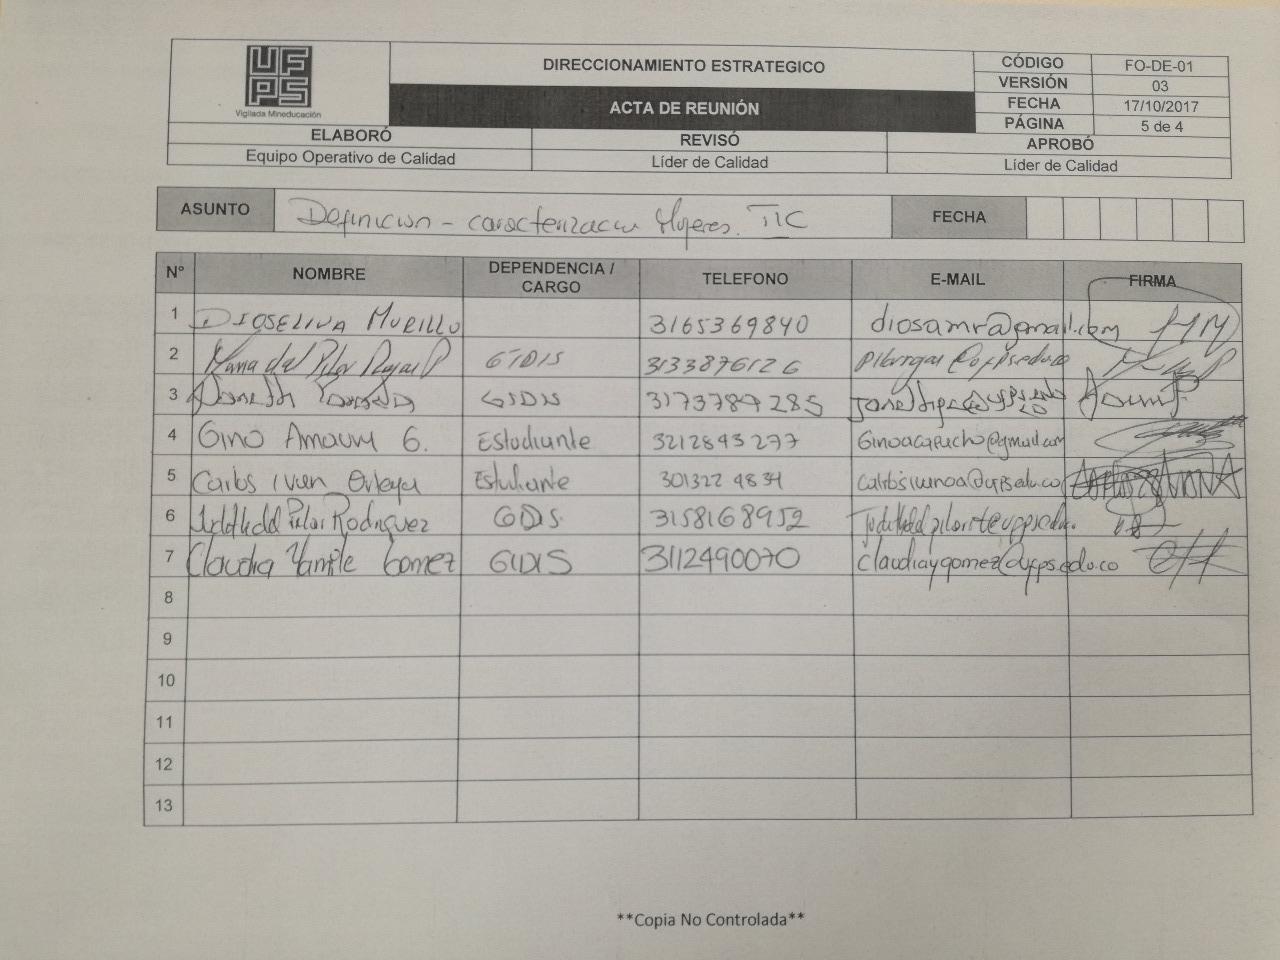 UFPS
Vigilada Mineducación
DIRECCIONAMIENTO ESTRATEGICO
ACTA DE REUNIÓN
CÓDIGO FO-DE-01
VERSIÓN 03
FECHA 17/10/2017
PÁGINA 5 de 4
ELABORÓ REVISÓ APROBÓ
Equipo Operativo de Calidad Líder de Calidad Líder de Calidad
ASUNTO Definicion - caracterizacion Mujeres. TIC FECHA
N° NOMBRE DEPENDENCIA / CARGO TELEFONO E-MAIL FIRMA
1 DIOSELINA MURILLO 3165369840 diosamr@gmail.com
2 Maria del Pilar Rojas P GIDIS 3133876126
3 GIDIS 3173789285
4 Gino Amaury G. Estudiante 3212843277 Ginoacapacho@gmail.com
5 Carlos Ivan Estudiante 301322 4834
6 Judith del Pilar Rodriguez GIDIS 3158168952
7 Claudia Yamile Gomez GIDIS 3112490070 claudiaygomez@ufps.edu.co
8
9
10
11
12
13
**Copia No Controlada**